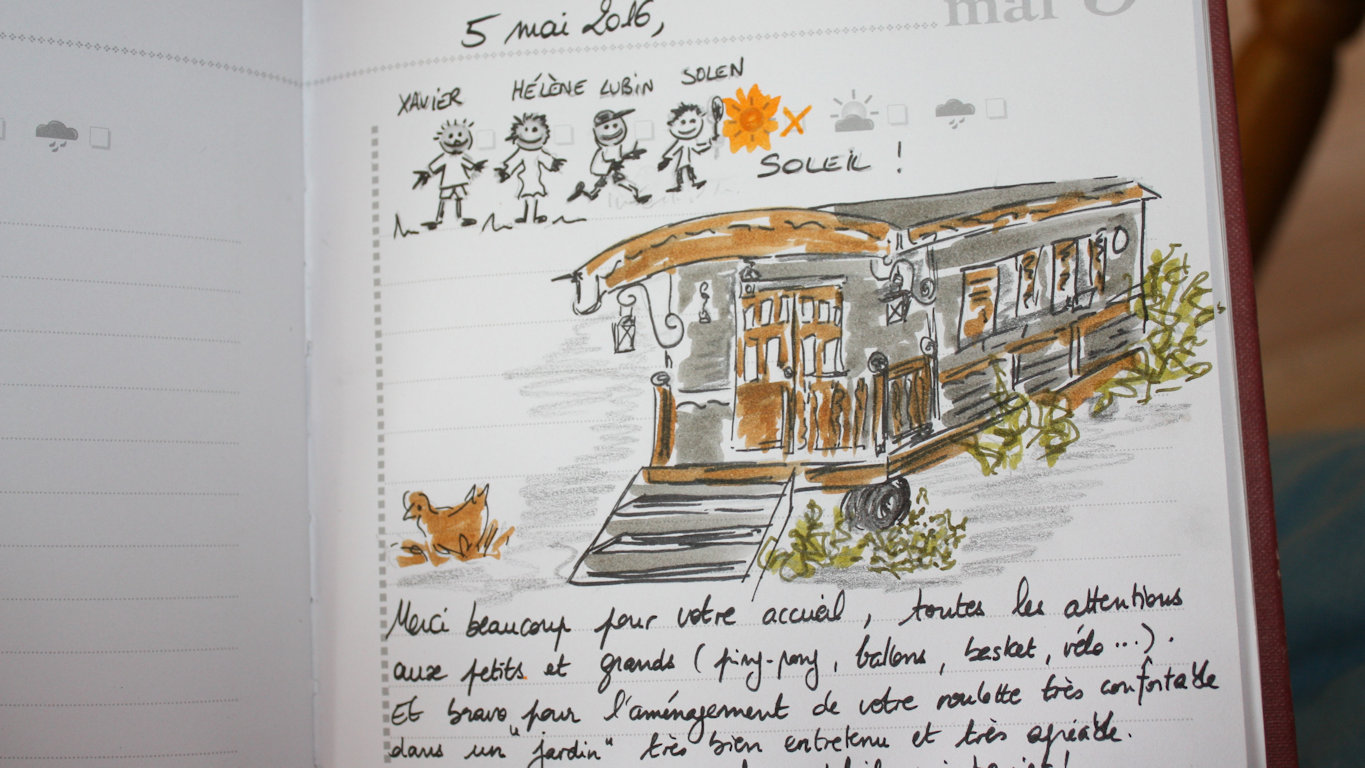 mai
5 mai 2016,
XAVIER HÉLÈNE LUBIN SOLEN
SOLEIL !
Merci beaucoup pour votre accueil, toutes les attentions
aux petits et grands (ping-pong, ballons, basket, vélo...).
Et bravo pour l'aménagement de votre roulotte très confortable
dans un "jardin" très bien entretenu et très agréable.